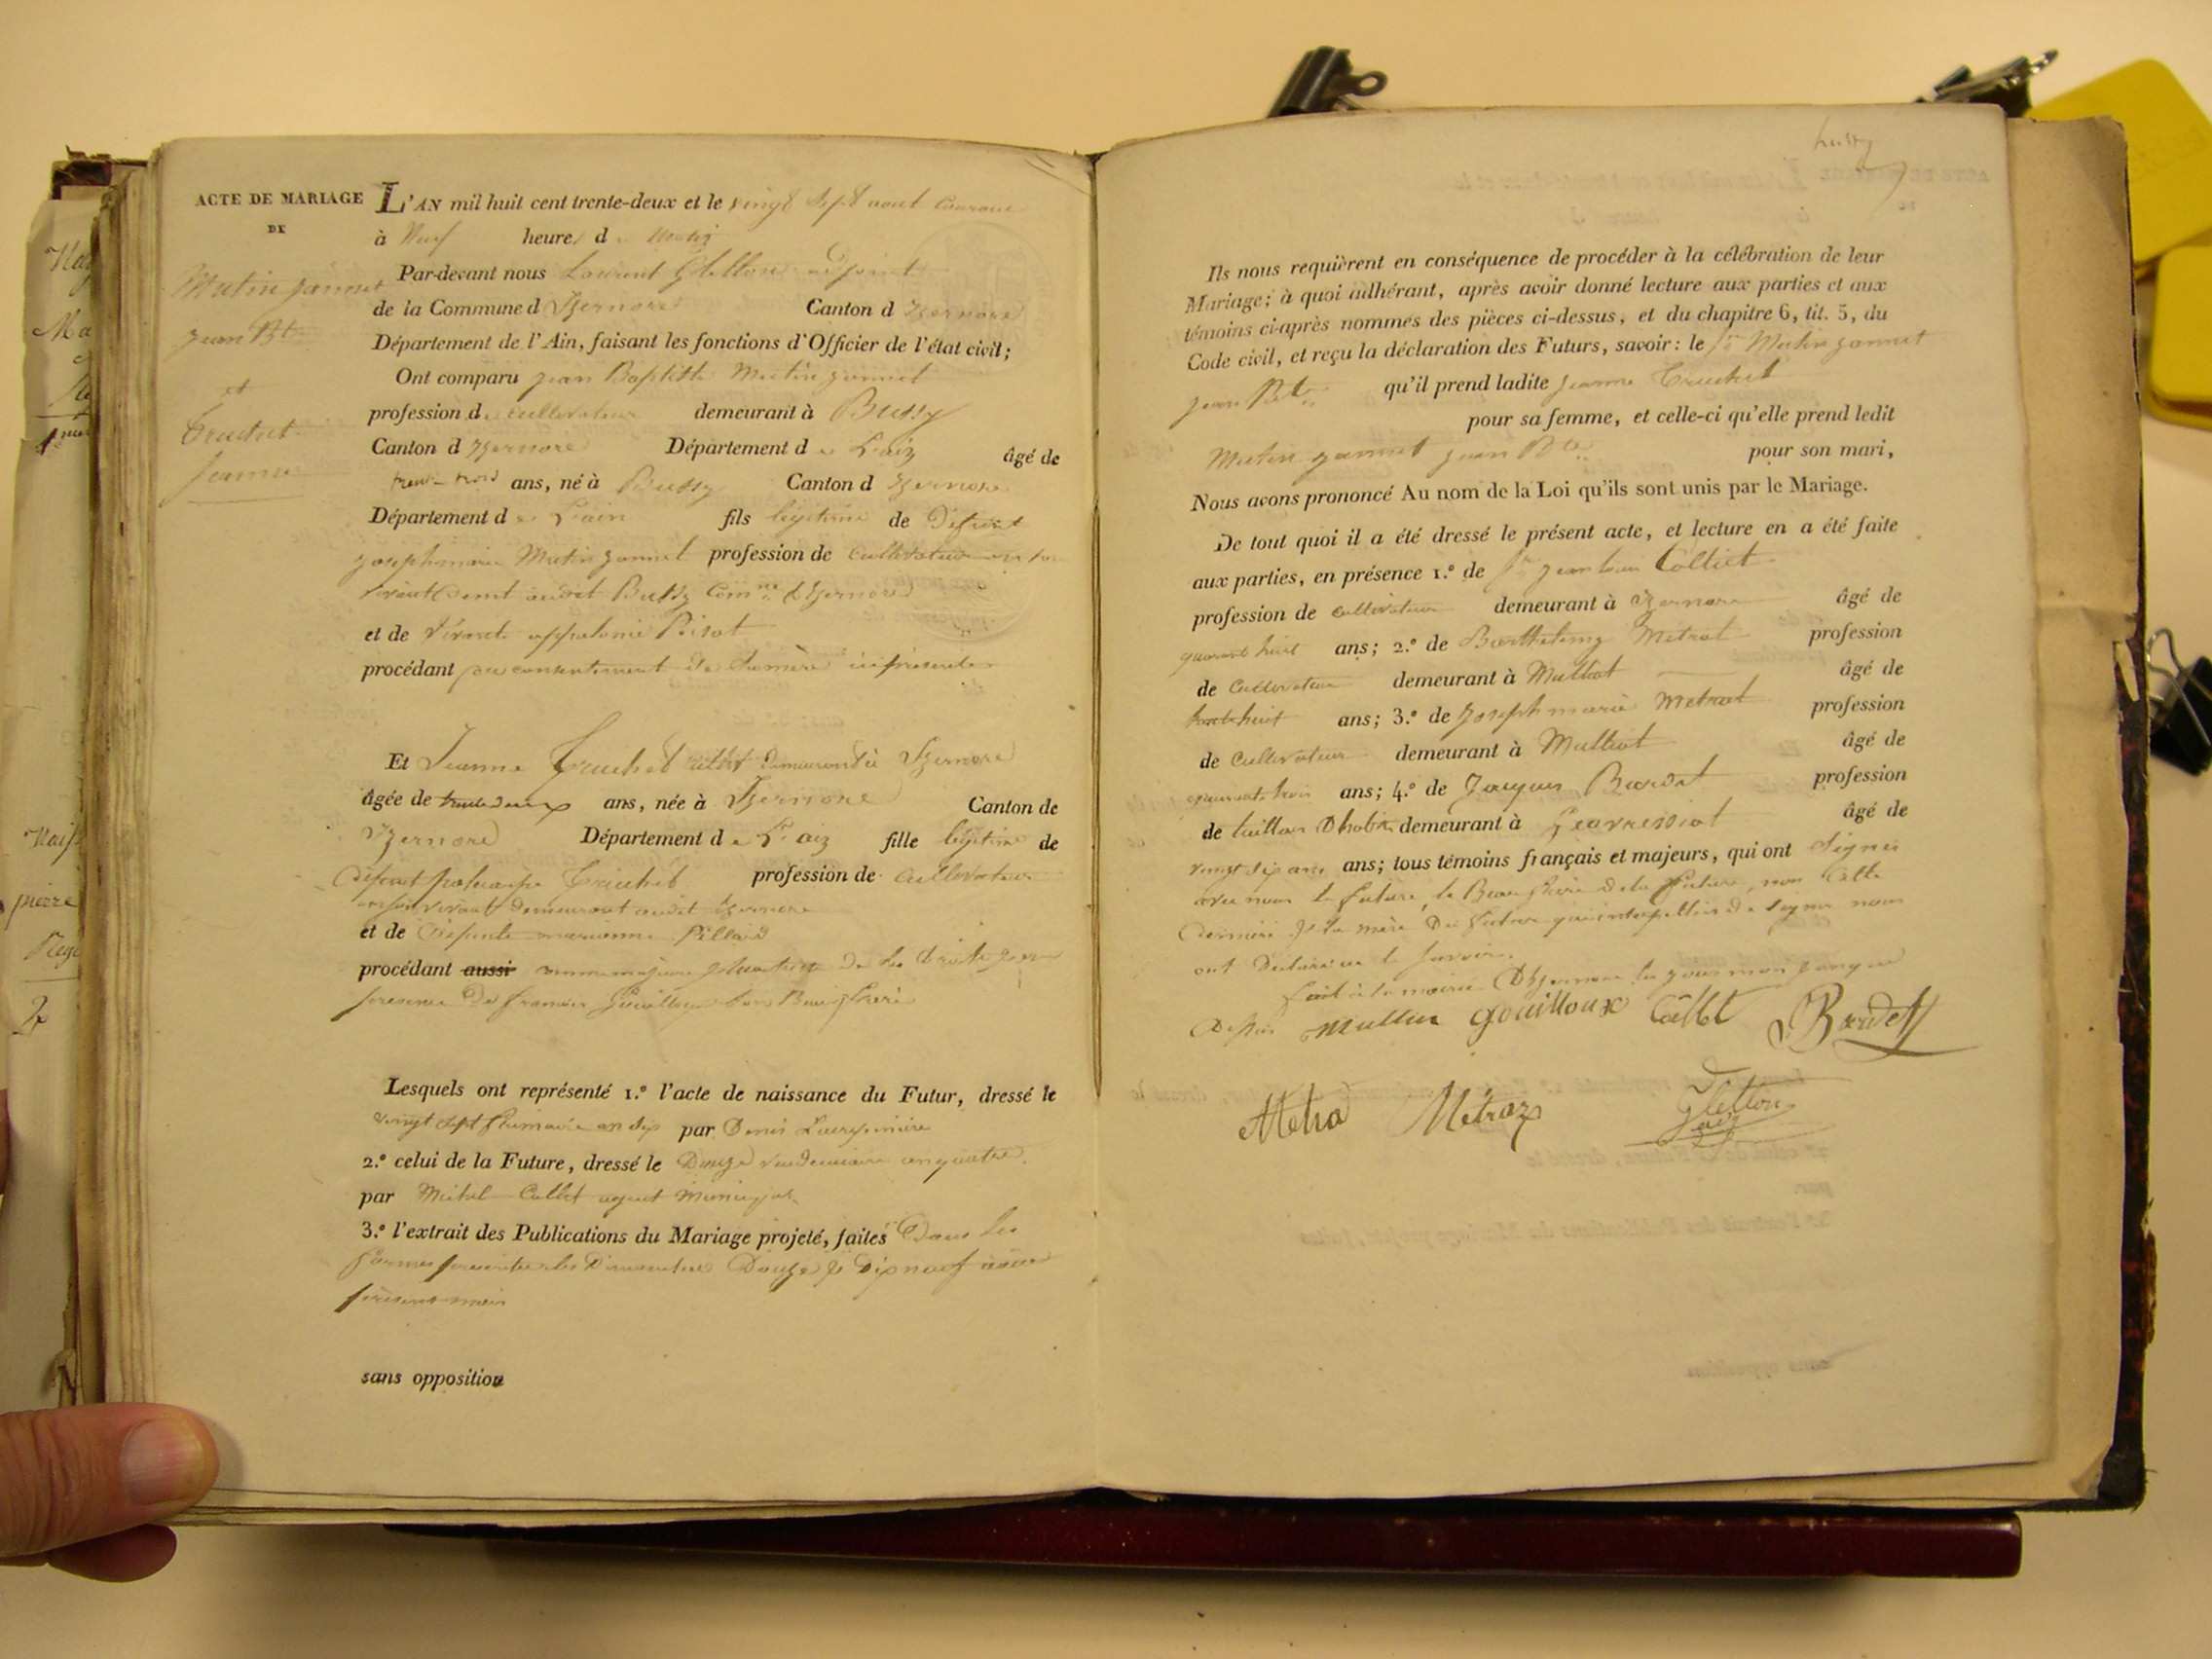 ACTE DE MARIAGE
DE
Mutin jannet
jean Bte
et
Truchet
Jeanne
L'AN mil huit cent trente-deux et le vingt sept aout courant
à Neuf heures du matin
Par-devant nous Laurent Gletton adjoint
de la Commune d'Izernore Canton d'Izernore
Département de l'Ain, faisant les fonctions d'Officier de l'état civil;
Ont comparu jean Baptiste Mutin jannet
profession de cultivateur demeurant à Bussy
Canton d'Izernore Département de L'ain âgé de
trente trois ans, né à Bussy Canton d'Izernore
Département de L'ain fils légitime de Defunt
joseph marie Mutin jannet profession de cultivateur en son
vivant demt audit Bussy Comne d'Izernore
et de vivante appolonie
procédant du consentement de sa mère ici présente
Et Jeanne Truchet demeurant à Izernore
âgée de trente deux ans, née à Izernore Canton de
Izernore Département de L'ain fille légitime de
Défunt Truchet profession de cultivateur
en son vivant demeurant audit Izernore
et de Défunte marianne Pillard
procédant aussi comme majeure de ses droits
présence de françois Gouilloux son Beau frère
Lesquels ont représenté 1.º l'acte de naissance du Futur, dressé le
vingt sept an dix par Denis
2.º celui de la Future, dressé le Douze vendemiaire an quatre
par Michel Collet agent Municipal
3.º l'extrait des Publications du Mariage projeté, faites Dans les
formes prescrites les Dimanches Douze & Dix neuf août
présent mois
sans opposition
Bussy
Ils nous requièrent en conséquence de procéder à la célébration de leur
Mariage; à quoi adhérant, après avoir donné lecture aux parties et aux
témoins ci-après nommés des pièces ci-dessus, et du chapitre 6, tit. 5, du
Code civil, et reçu la déclaration des Futurs, savoir: le Sr Mutin jannet
jean Bte qu'il prend ladite jeanne Truchet
pour sa femme, et celle-ci qu'elle prend ledit
Mutin jannet jean Bte pour son mari,
Nous avons prononcé Au nom de la Loi qu'ils sont unis par le Mariage.
De tout quoi il a été dressé le présent acte, et lecture en a été faite
aux parties, en présence 1.º de Sr jean Colliet
profession de cultivateur demeurant à Izernore âgé de
quarante huit ans; 2.º de Barthelemy Metrat profession
de Cultivateur demeurant à Multiat âgé de
trente huit ans; 3.º de Joseph marie Metrat profession
de Cultivateur demeurant à Multiat âgé de
quarante trois ans; 4.º de Jacques Bardet profession
de tailleur D'habits demeurant à Geovressiat âgé de
vingt six ans ans; tous témoins français et majeurs, qui ont Signés
avec nous le futur, le Beau frère de la future, non Cette
dernière & la mère du futur qui interpellés de signer nous
ont Déclaré ne le savoir.
fait à la mairie D'Izernore les jour mois & an que
Dessus Muttin gouilloux Collet Bardet
Metra Métraz Gletton
adj